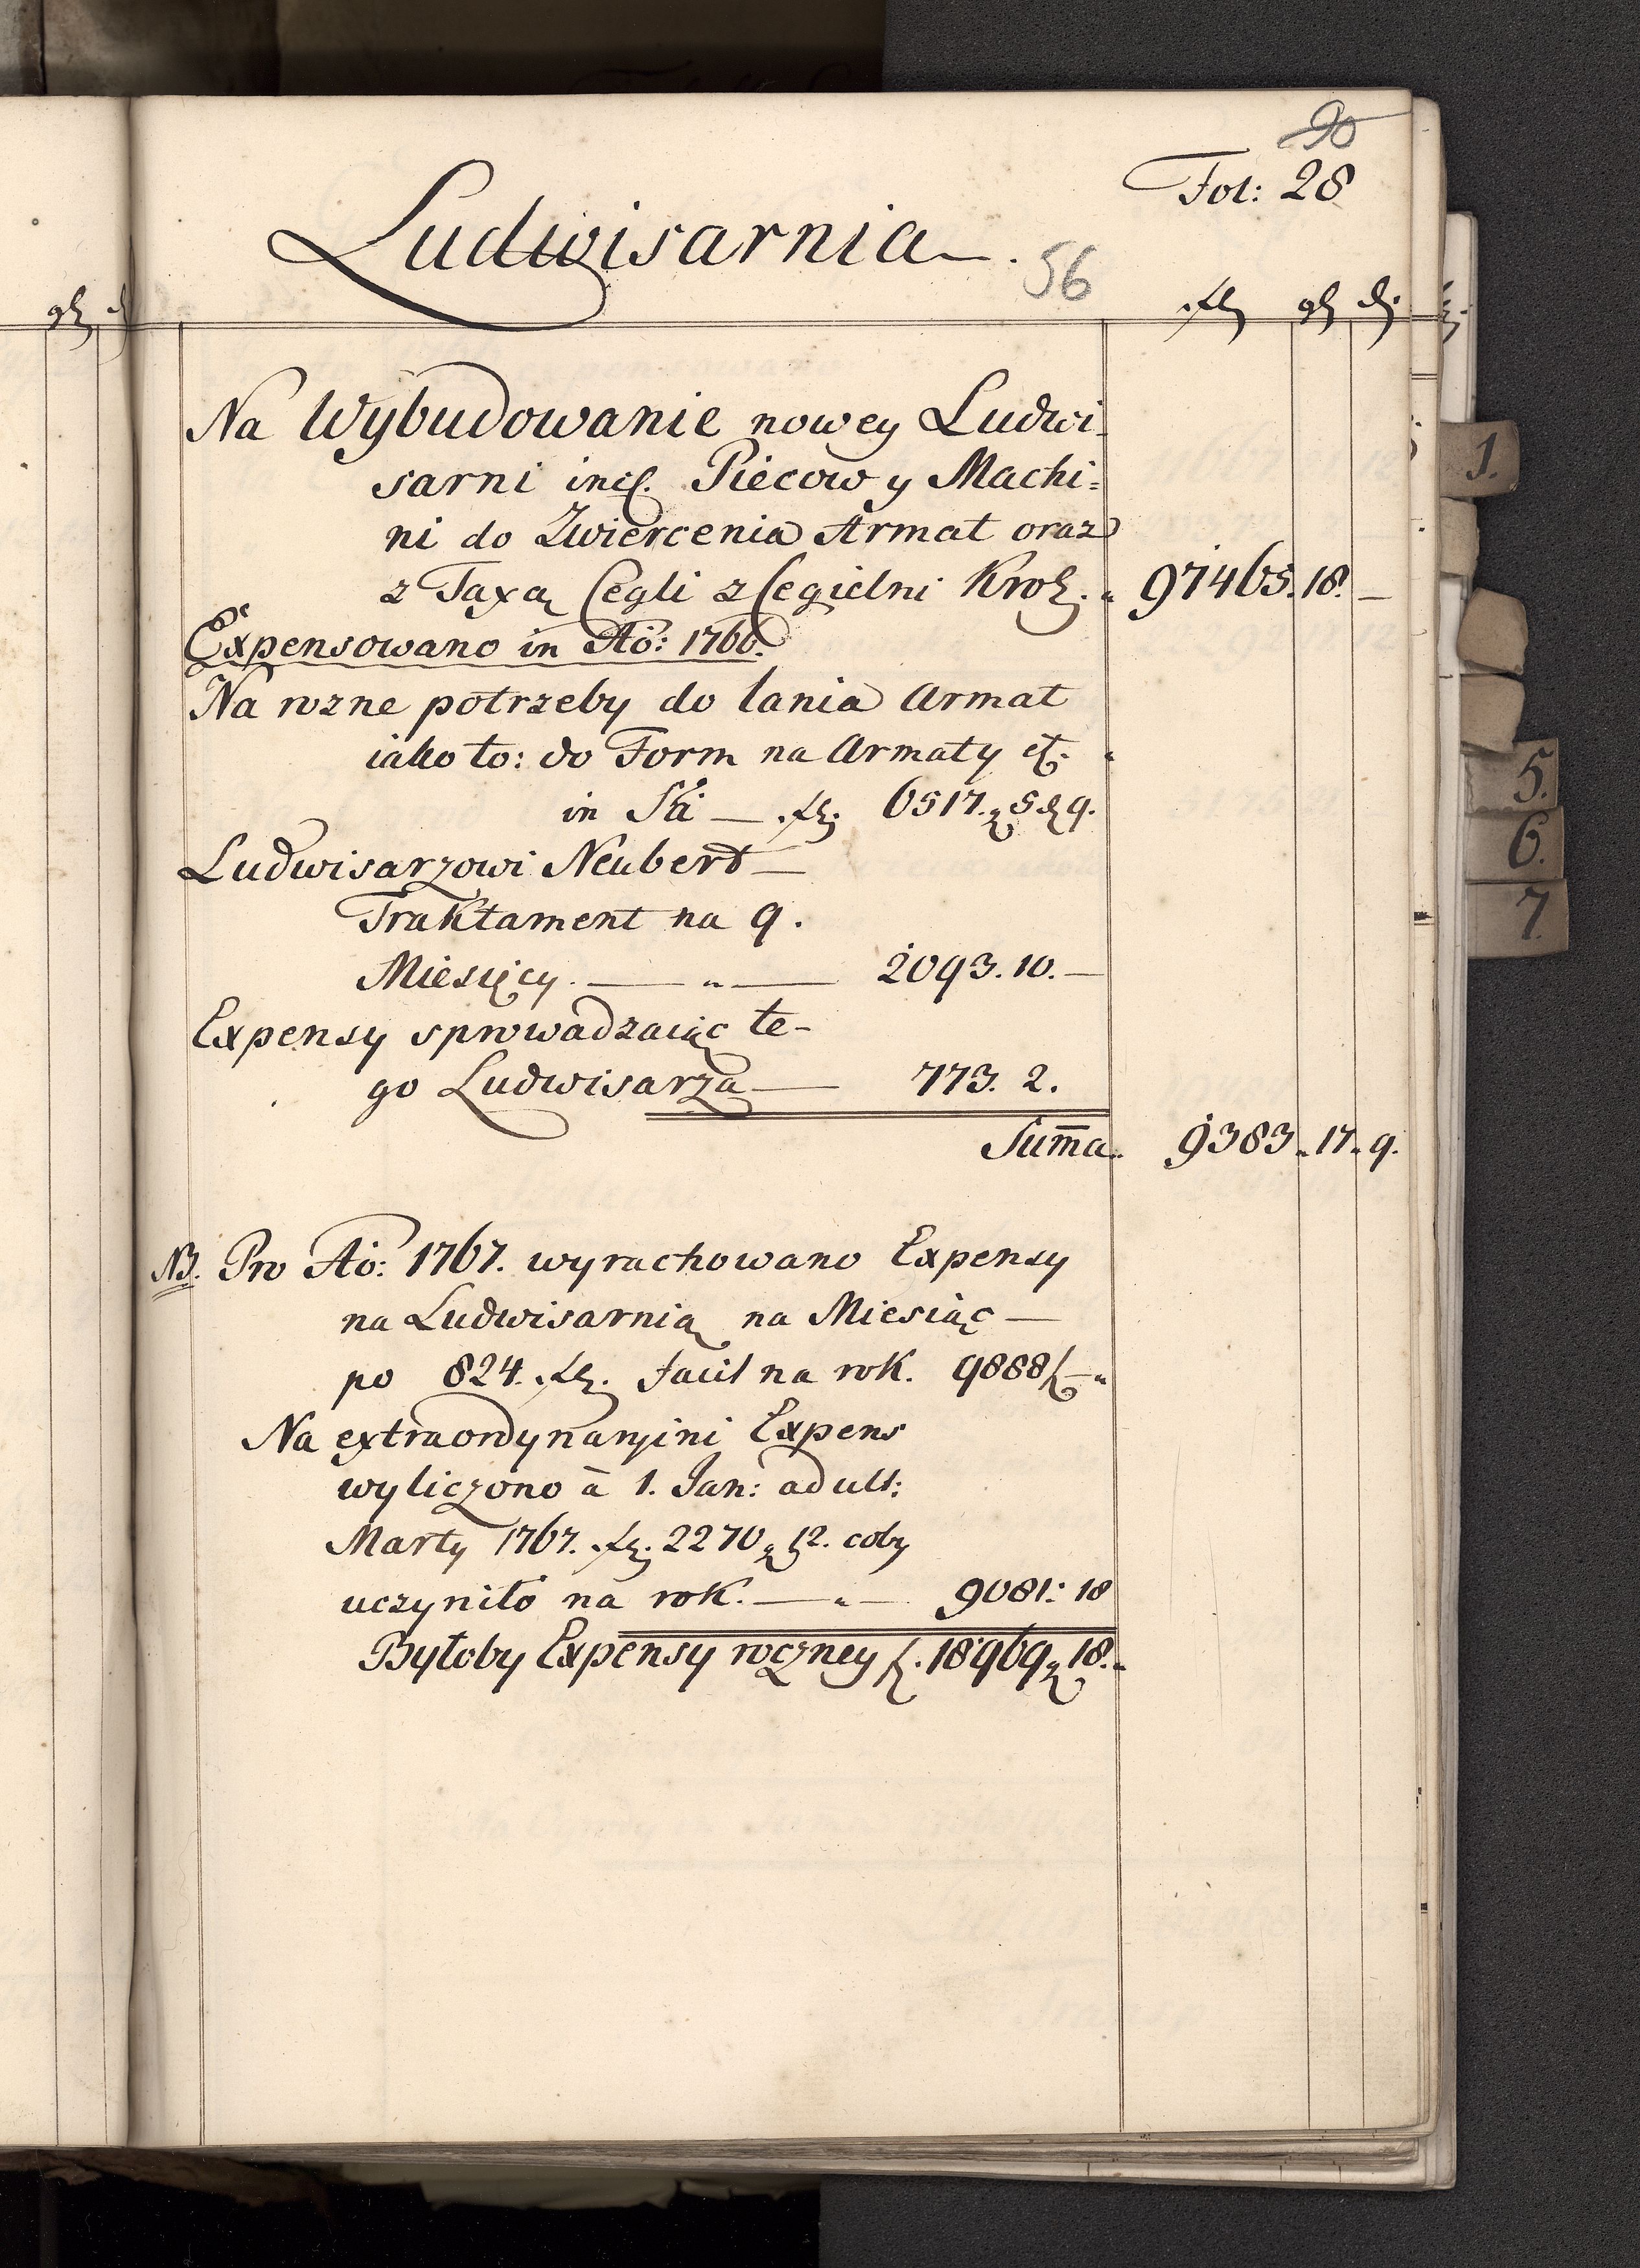 90
Fol: 28
Ludwisarnia.
56
fl. gl. d.
Na Wybudowanie nowey Ludwi-
sarni incl. Piecow y Machi=
ni do Zwiercenia Armat oraz
z Taxą Cegli z Cegielni Krol. 97465. 18. —
Expensowano in Ao: 1766.
Na rozne potrzeby do lania Armat
iako to: do Form na Armaty etc.
in Sa — fl. 6517. g 5 d 9.
Ludwisarzowi Neubert —
Traktament na 9.
Miesięcy. — " — 2093. 10. —
Expensy sprowadzaiąc te-
go Ludwisarza — 773. 2.
Suma. 9383. 17. 9.
NB. Pro Ao: 1767. wyrachowano Expensy
na Ludwisarnią na Miesiąc —
po 824. fl. facit na rok. 9888 f —
Na extraordynaryini Expens
wyliczono à 1. Jan: ad ult:
Marty 1767. fl. 2270 g 12. coby
uczyniło na rok. — " — 9081: 18
Byłoby Expensy roczney f. 18969 g 18.
1.
5.
6.
7.